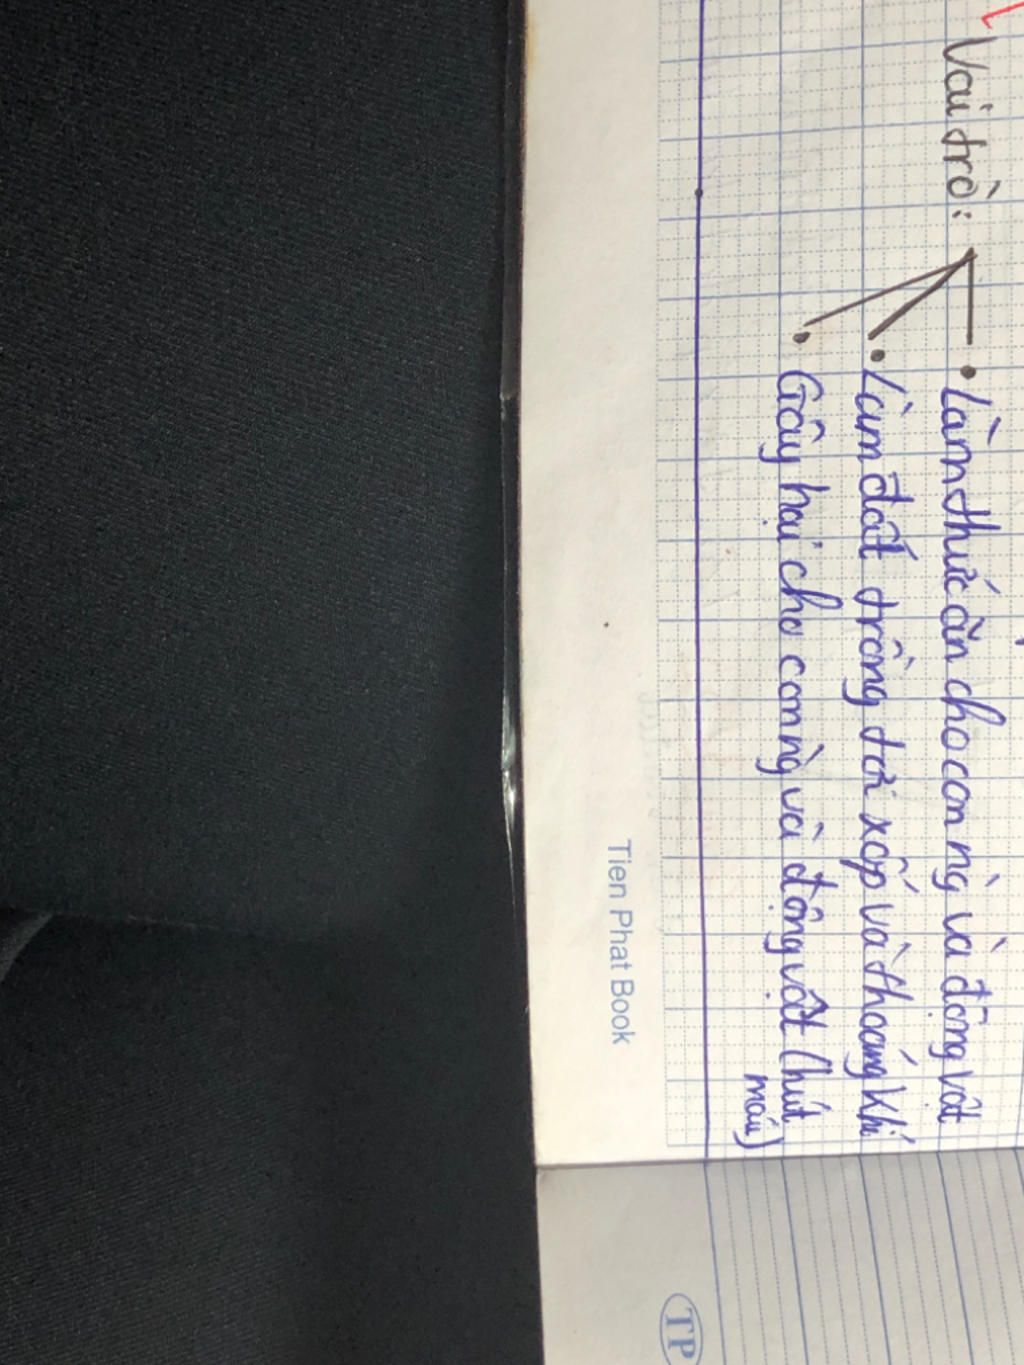 Vai trò:
• Làm thức ăn cho con ng` và động vật
• Làm đất trồng tơi xốp và thoáng khí
• Gây hại cho con ng và động vật (hút
máu)
Tien Phat Book
TP